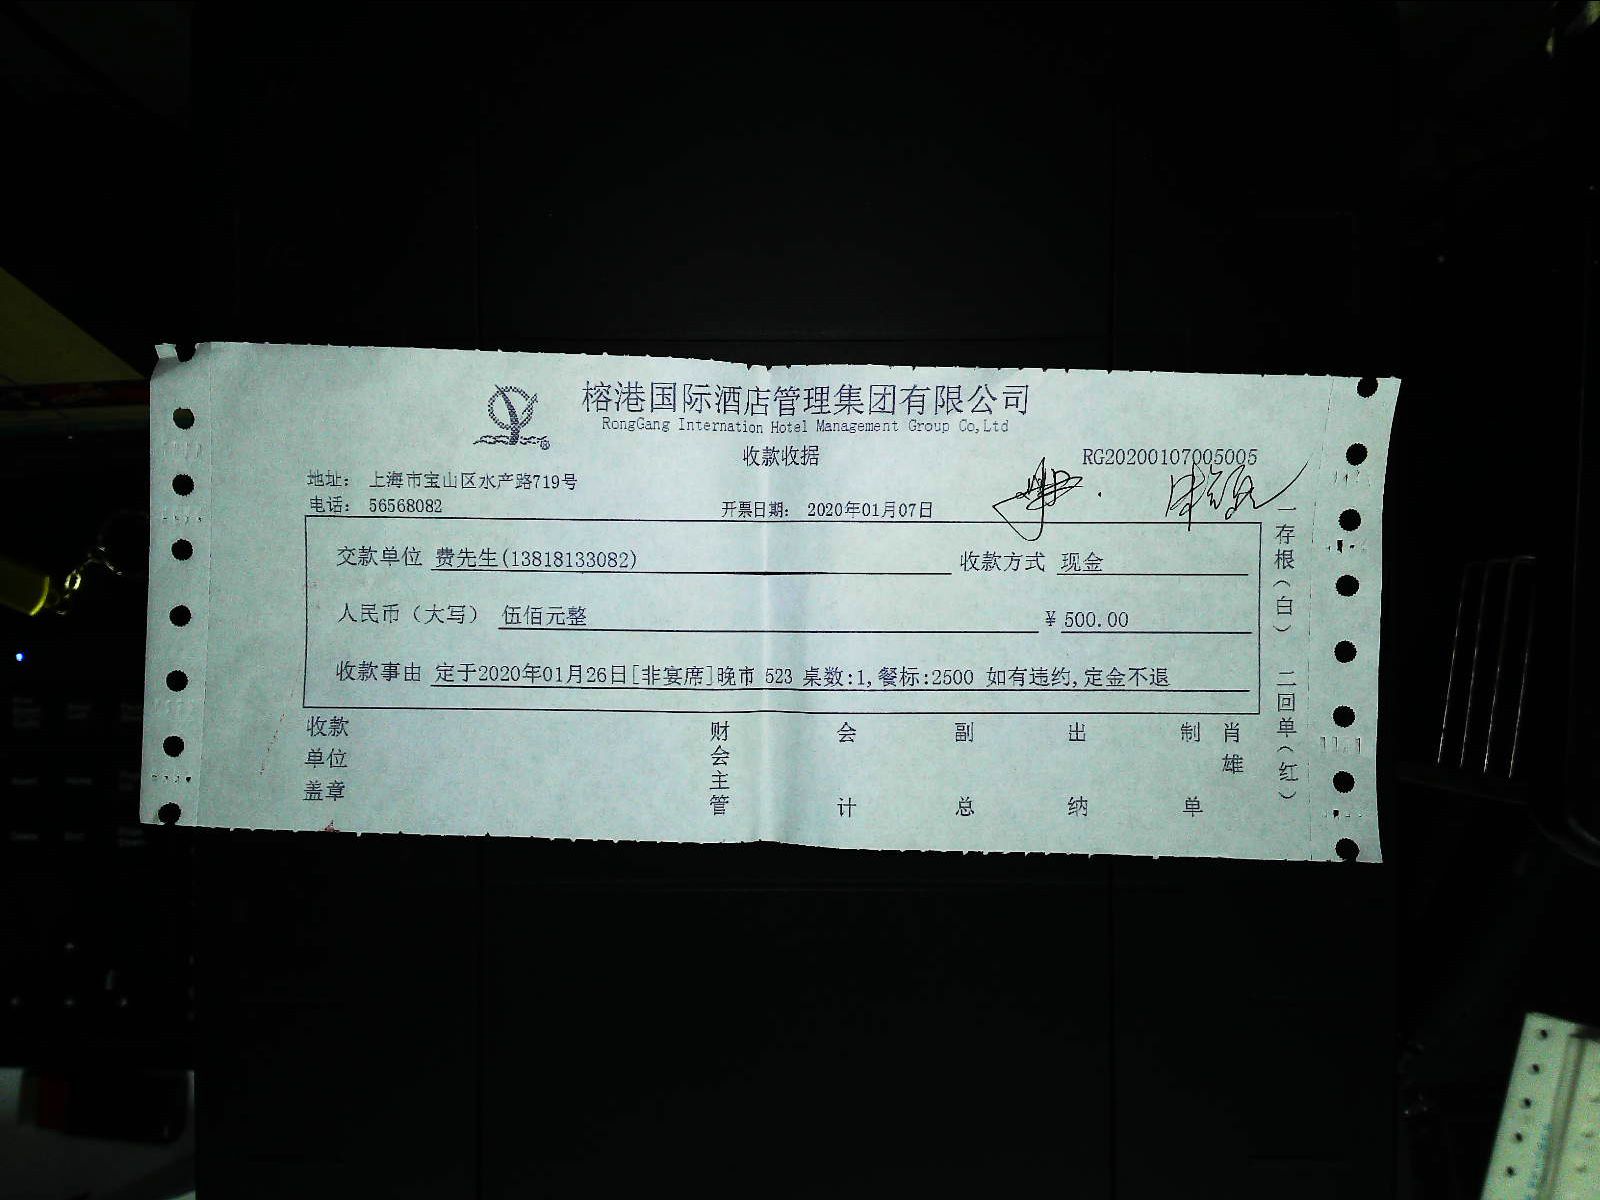 榕港国际酒店管理集团有限公司
RongGang Internation Hotel Management Group Co,Ltd
收款收据
RG20200107005005
地址： 上海市宝山区水产路719号
电话： 56568082
开票日期： 2020年01月07日
交款单位 费先生(13818133082)
收款方式 现金
人民币（大写） 伍佰元整
¥ 500.00
收款事由 定于2020年01月26日[非宴席]晚市 523 桌数:1,餐标:2500 如有违约,定金不退
收款单位盖章
财会主管
会计
副总
出纳
制单
肖雄
一存根（白） 二回单（红）